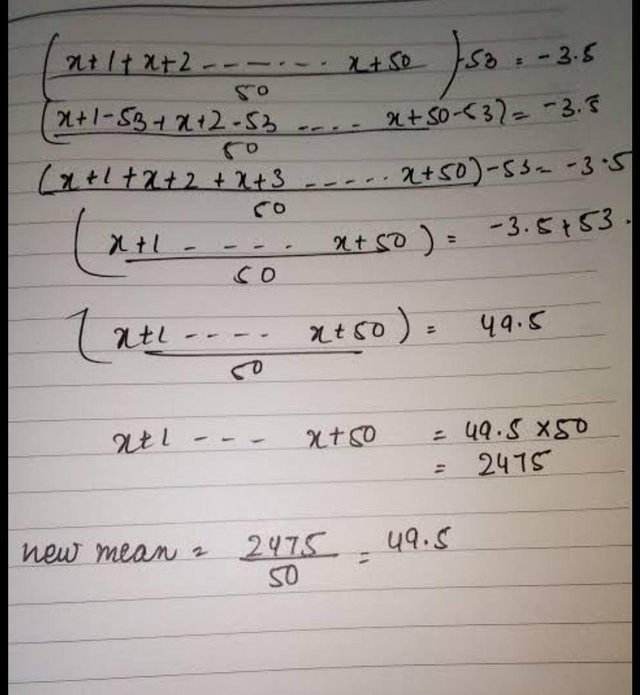 (x+1+x+2 ------- x+50 / 50) -53 = -3.5
(x+1-53+x+2-53 ---- x+50-53 / 50) = -3.5
(x+1+x+2+x+3 ------ x+50 / 50) -53 = -3.5
(x+1 ----- x+50 / 50) = -3.5+53.
(x+1 ----- x+50 / 50) = 49.5
x+1 --- - x+50 = 49.5 x50
= 2475
new mean = 2475 / 50 = 49.5